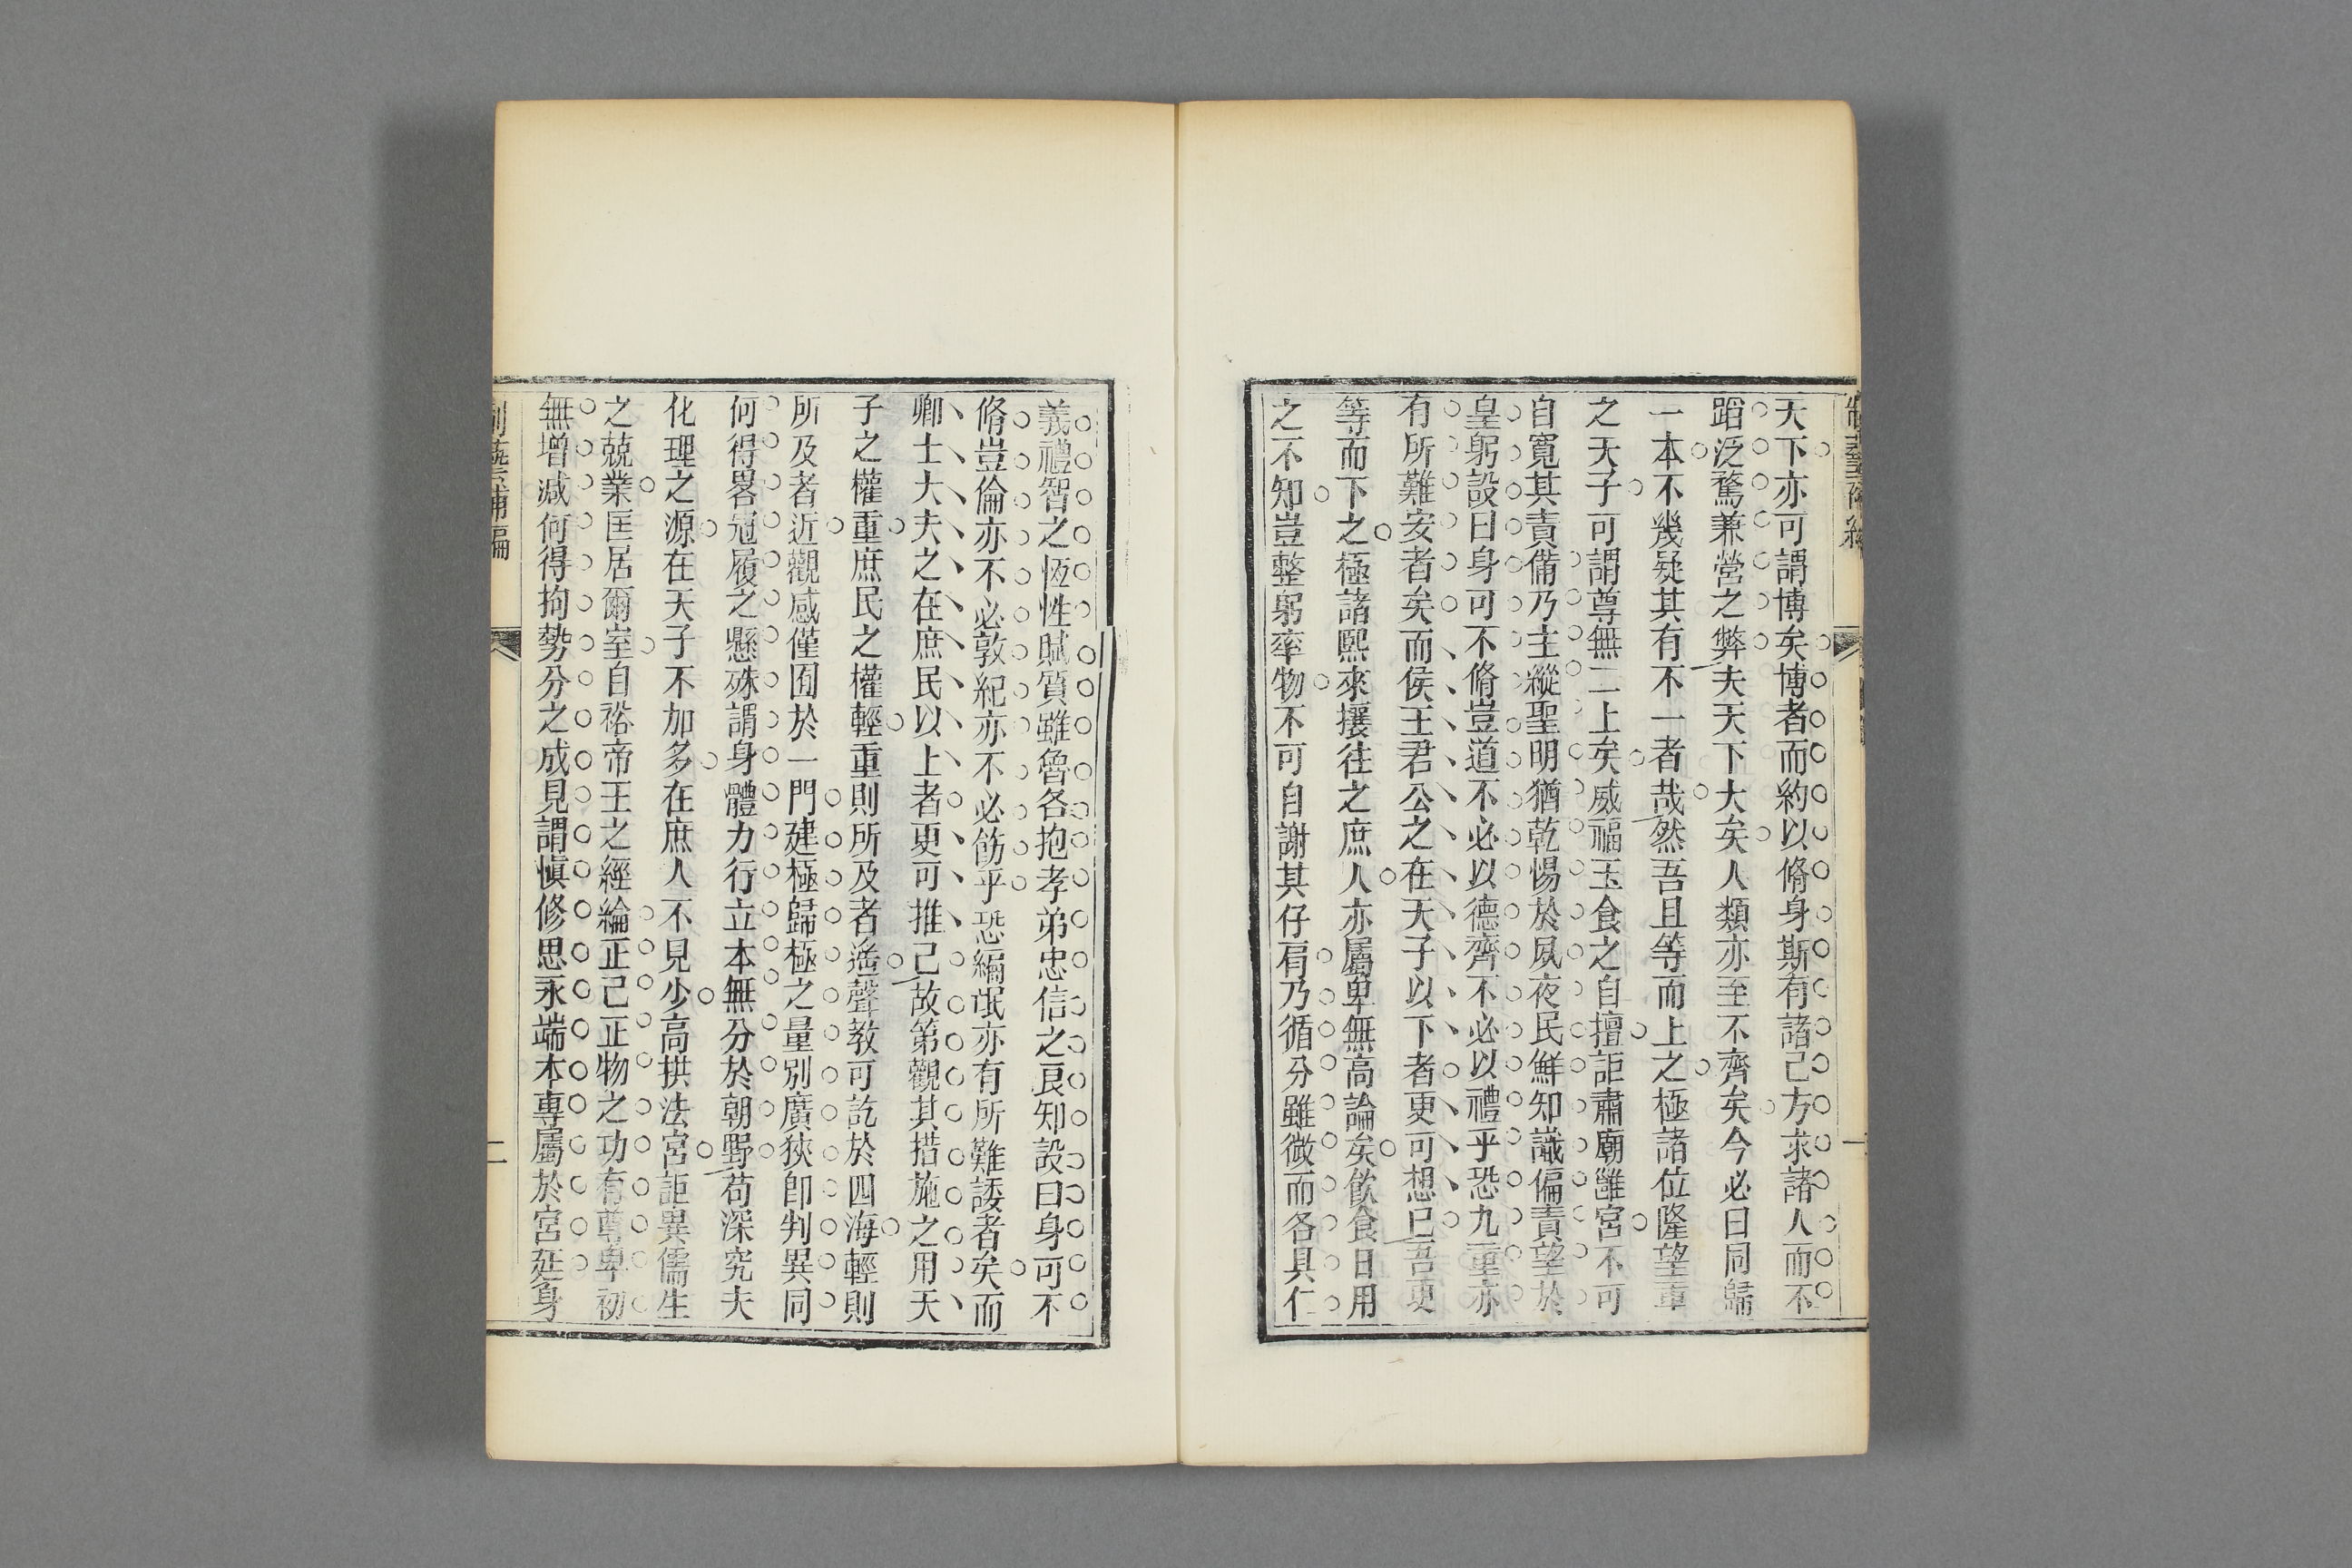 天下亦可謂博矣博者而約以脩身斯有諸己方求諸人而不
蹈泛騖兼營之弊夫天下大矣人類亦至不齊矣今必曰同歸
一本不幾疑其有不一者哉然吾且等而上之極諸位隆望重
之天子可謂尊無二上矣威福玉食之自擅詎肅廟雝宮不可
自寬其責備乃主縱聖明猶乾惕於夙夜民鮮知識偏責望於
皇躬設曰身可不脩豈道不必以德齊不必以禮乎恐九重亦
有所難安者矣而侯王君公之在天子以下者更可想已吾更
等而下之極諸熙來攘往之庶人亦屬卑無高論矣飲食日用
之不知豈整躬率物不可自謝其仔肩乃循分雖微而各具仁
義禮智之恆性賦質雖魯各抱孝弟忠信之良知設曰身可不
脩豈倫亦不必敦紀亦不必飭乎恐編氓亦有所難諉者矣而
卿士大夫之在庶民以上者更可推己故第觀其措施之用天
子之權重庶民之權輕重則所及者遙聲教可訖於四海輕則
所及者近觀感僅囿於一門建極歸極之量別廣狹卽判異同
何得畧冠履之懸殊謂身體力行立本無分於朝野苟深究夫
化理之源在天子不加多在庶人不見少高拱法宮詎異儒生
之兢業匡居爾室自裕帝王之經綸正己正物之功有尊卑初
無增減何得拘勢分之成見謂愼修思永端本專屬於宮廷身
二